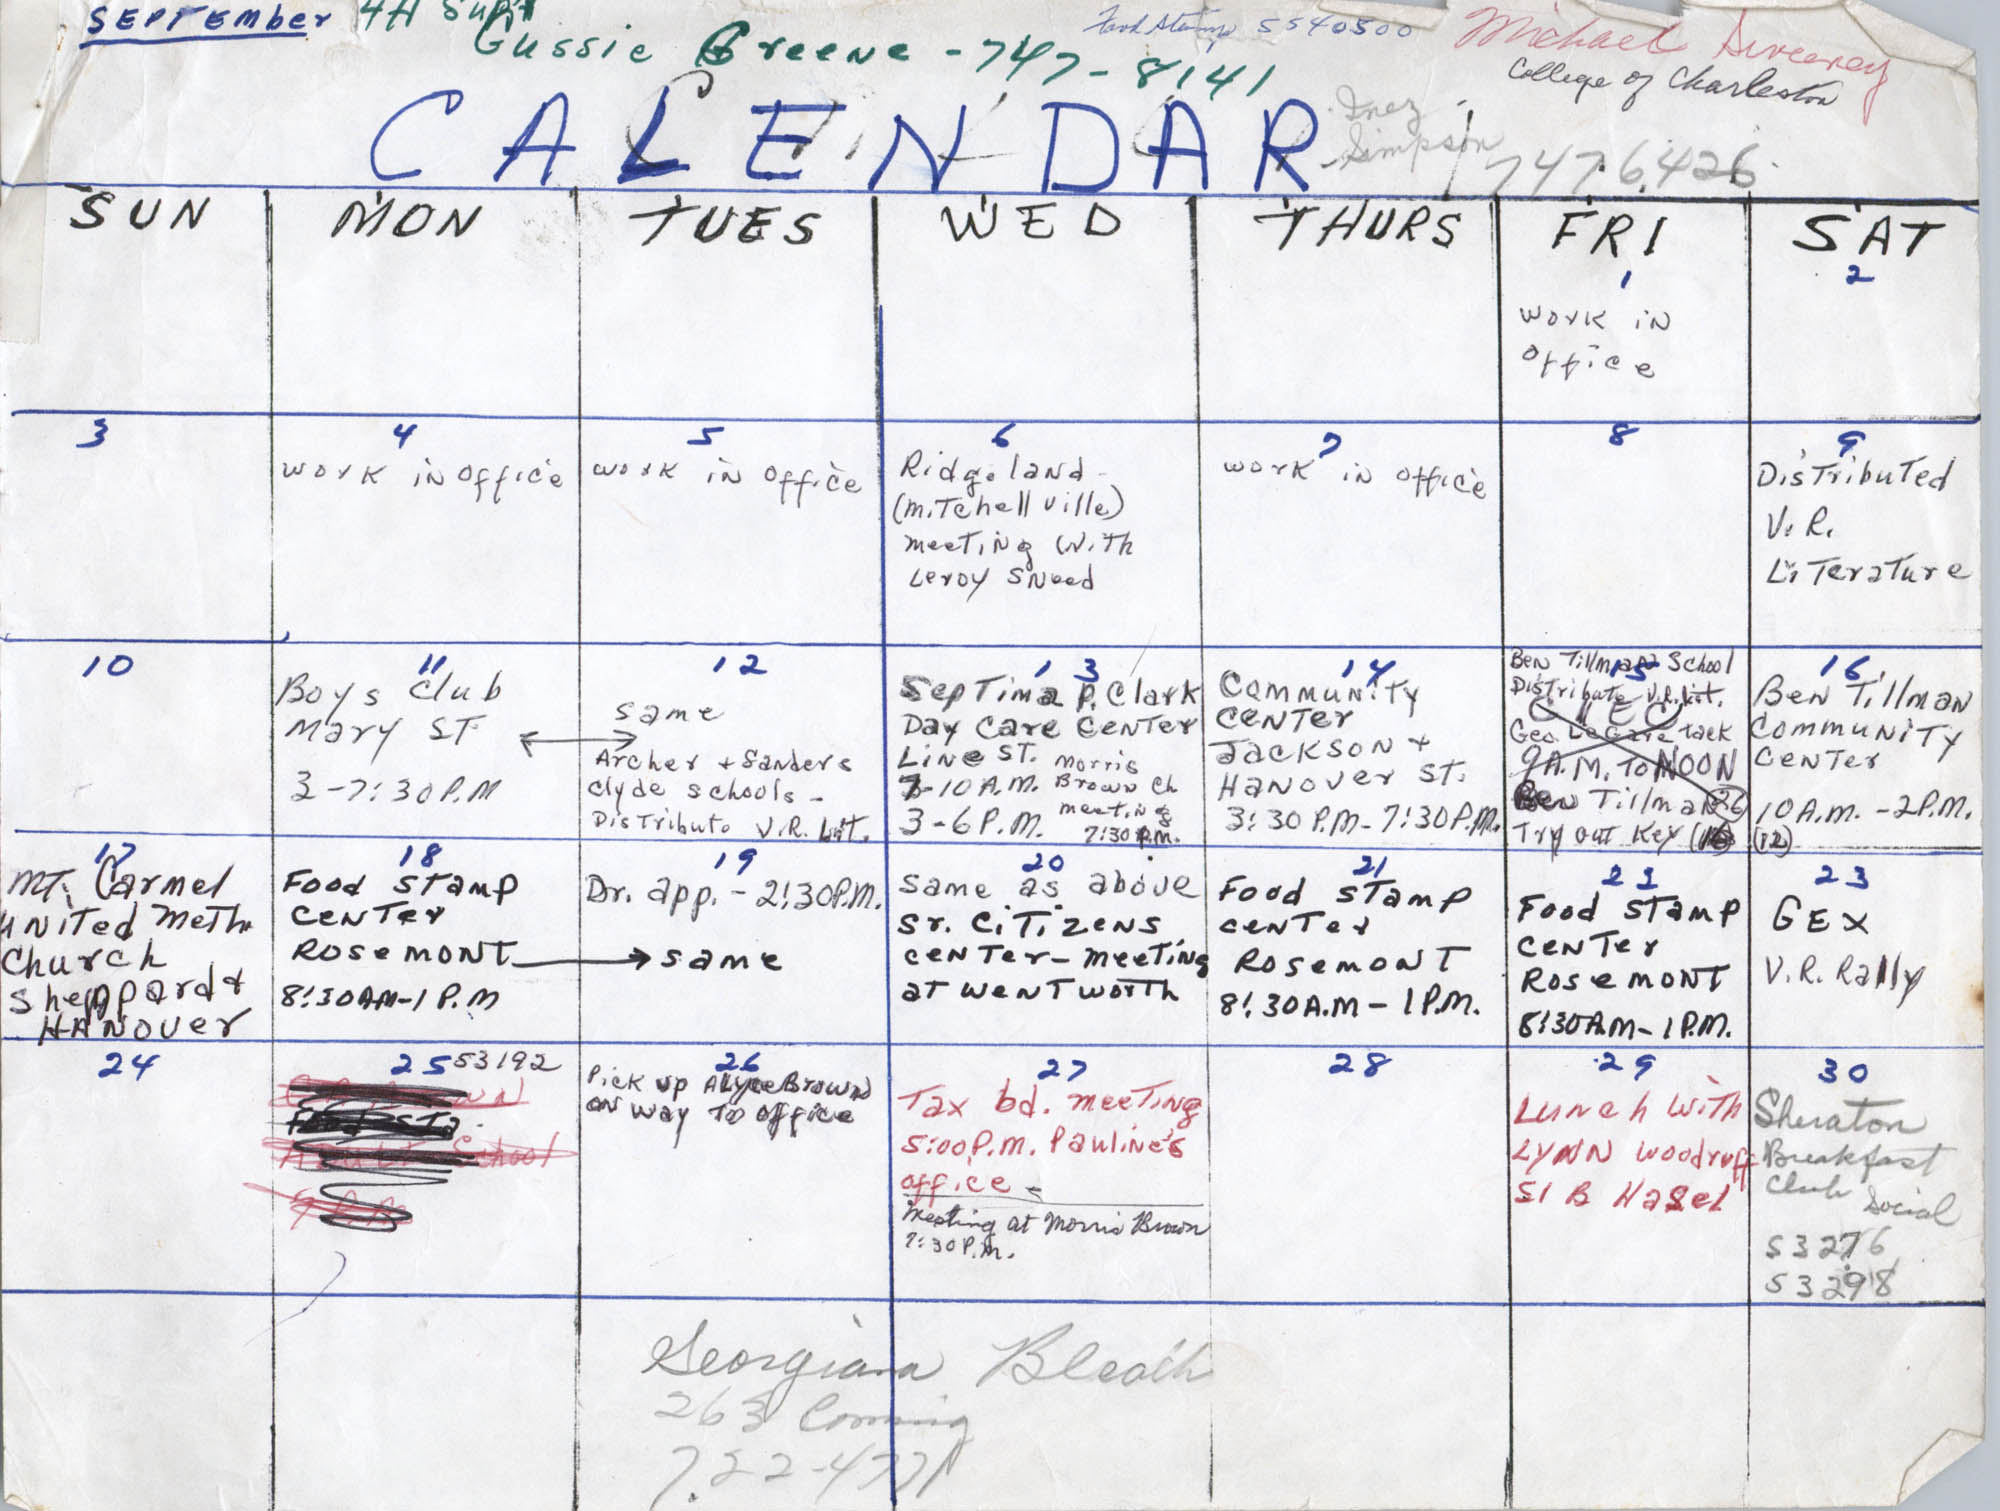 SEPTEMBER 4H Sup't
Gussie Greene - 747-8141
Food Stamp 5540500
Michael Sweeney
College of Charleston
Inez
Simpson
747.6426
CALENDAR
SUN MON TUES WED THURS FRI SAT
1
work in
office
2
3
4
work in office
5
work in office
6
Ridgeland
(Mitchellville)
meeting with
Leroy Sneed
7
work in office
8
9
Distributed
V.R.
Literature
10
11
Boys Club
Mary ST.
3-7:30P.M
12
same
Archer + Sanders
Clyde schools -
Distribute V.R. Lit.
13
Septima P. Clark
Day Care Center
Line ST.
7-10A.M.
3-6P.M.
Morris
Brown Ch
meeting
7:30P.M.
14
Community
Center
Jackson +
Hanover ST.
3:30P.M-7:30P.M.
15
Ben Tillman School
Distribute V.R. Lit.
Geo. LeGare tack
9A.M. To NOON
Ben Tillman
Try out Key
16
Ben Tillman
Community
Center
10A.M.-2P.M.
(12)
17
MT. Carmel
United Meth.
Church
Sheppard +
Hanover
18
Food Stamp
Center
Rosemont
8:30AM-1P.M
19
Dr. app. - 2:30P.M.
same
20
same as above
Sr. Citizens
center-meeting
at Wentworth
21
Food Stamp
center
Rosemont
8:30A.M-1P.M.
Food Stamp
center
Rosemont
8:30A.M-1P.M.
23
GEX
V.R. Rally
24
25 53192
School
26
Pick up Alyce Brown
on way to office
27
Tax bd. meeting
5:00P.M. Pauline's
office -
Meeting at Morris Brown
7:30P.M.
28
29
Lunch with
Lynn Woodruff
51 B Hasel
30
Sheraton
Breakfast
Club Social
53276
53298
Georgiana
263 Coming
722-4771